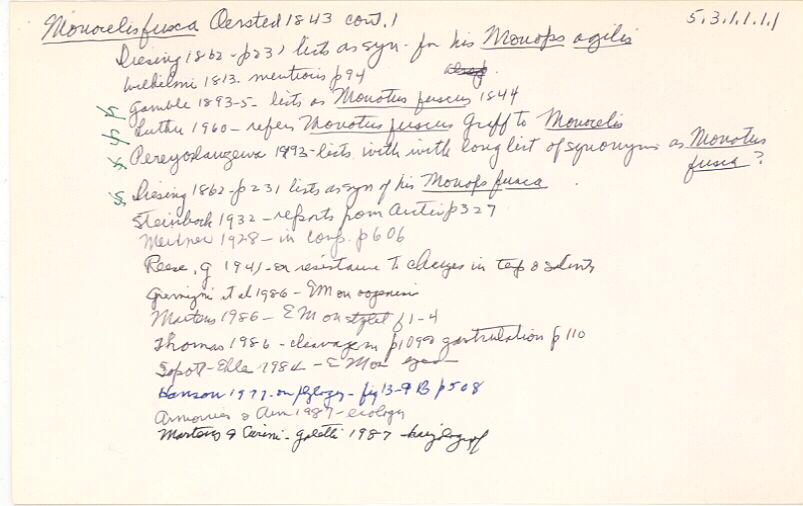 Monocelis fusca Oersted 1843 cont. 1
5.3.1.1.1.1
Diesing 1862 - p231 lists as syn. for his Monops agilis
Wilhelmi 1813 mentions p94
Gamble 1893-5 - lists as Monotus fuscus 1844
Luther 1960 - refers Monotus fuscus Graff to Monocelis
Pereyaslawzewa 1893 - lists with with long list of synonyms as Monotus
fusca?
Diesing 1862 - p231 lists as syn of his Monops fusca
Steinbock 1932 - reports from p327
Meixner 1928 - in p606
Reese, g 1941 - on resistance to changes in temp & salinity
et al 1986 - EM on oogenesis
Martens 1986 - EM on stylet p1-4
Thomas 1986 - cleavage on p109 & gastrulation p110
Sopott-Ehlers 1984 - EM on eyes
Hanson 1977 - on phylogeny - fig 13-9B p508
Armonies & 1987 - ecology
Martens & Curini-Galletti 1987 - karyology